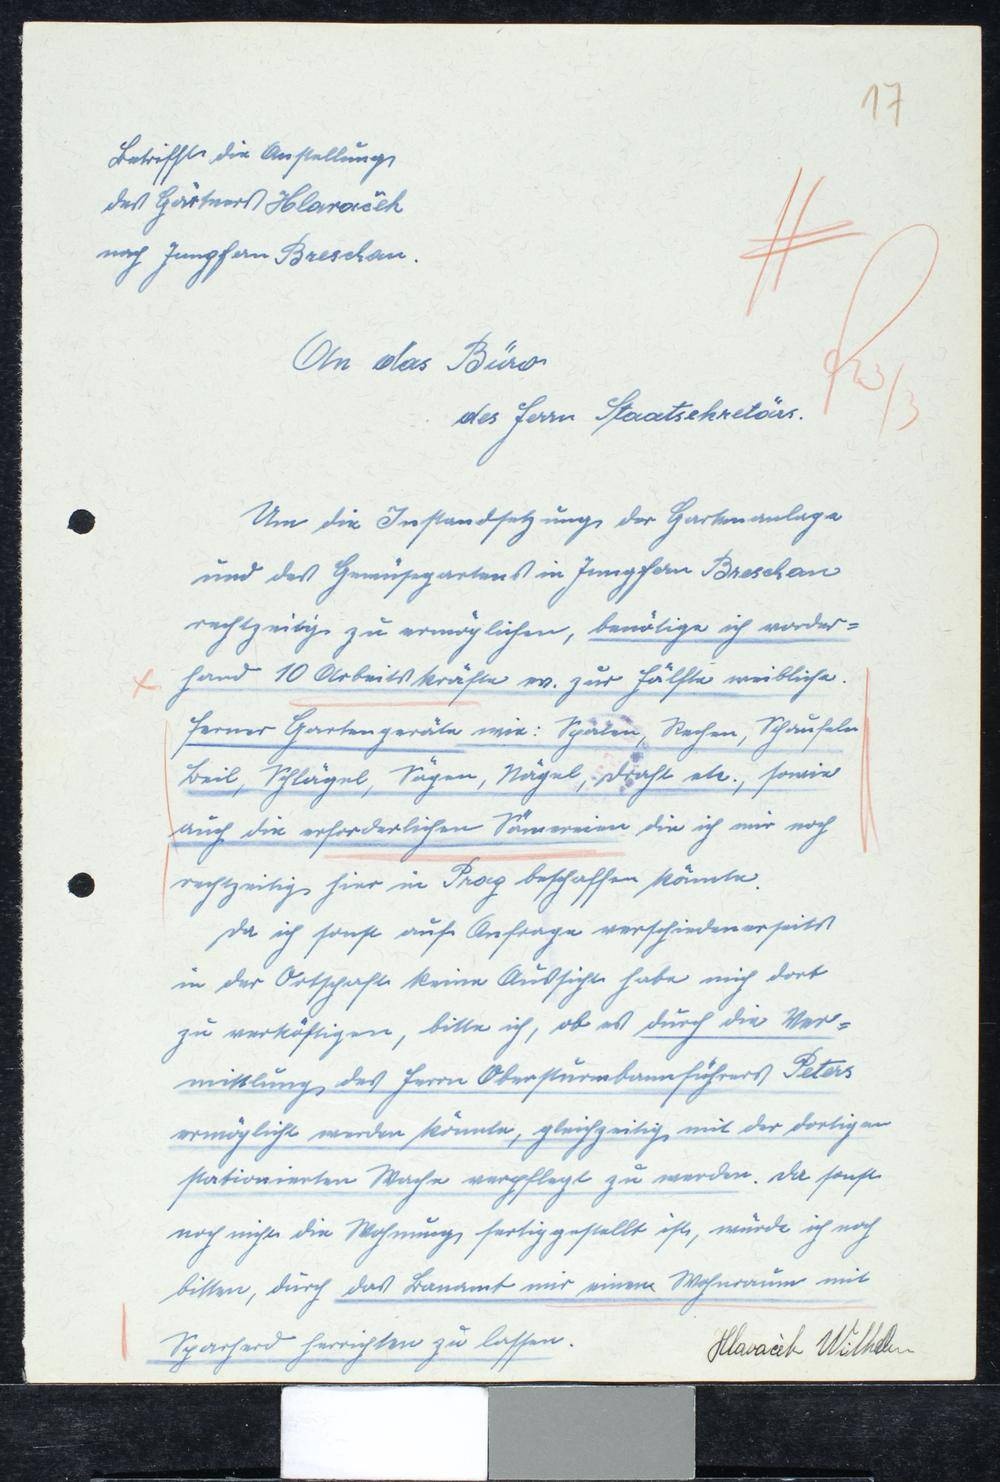 17
Betrifft die Anstellung
des Gärtners Hlavaček
nach Jungfern Breschan.
An das Büro
des Herrn Staatsekretärs.
Um die Instandsetzung der Gartenanlage
und des Gemüsegartens in Jungfern Breschan
rechtzeitig zu ermöglichen, benötige ich vorder=
hand 10 Arbeitskräfte ev. zur Hälfte weibliche.
ferner Gartengeräte wie: Späten, Rechen, Schaufeln
Beil, Schlägel, Sägen, Nägel, Draht etc., sowie
auch die erforderlichen Sämereien die ich mir noch
rechtzeitig hier in Prag beschaffen könnte.
Da ich sonst auf Anfrage verschiedenerseits
in der Ortschaft keine Aussicht habe mich dort
zu verköstigen, bitte ich, ob es durch die Ver=
mittlung des Herrn Obersturmbannführers Peters
ermöglicht werden könnte, gleichzeitig mit der dortigen
stationierten Wache verpflegt zu werden. Da sonst
noch nicht die Wohnung fertiggestellt ist, würde ich noch
bitten, durch das Bauamt mir einen Wohnraum mit
Sparherd herrichten zu lassen.
Hlavaček Wilhelm